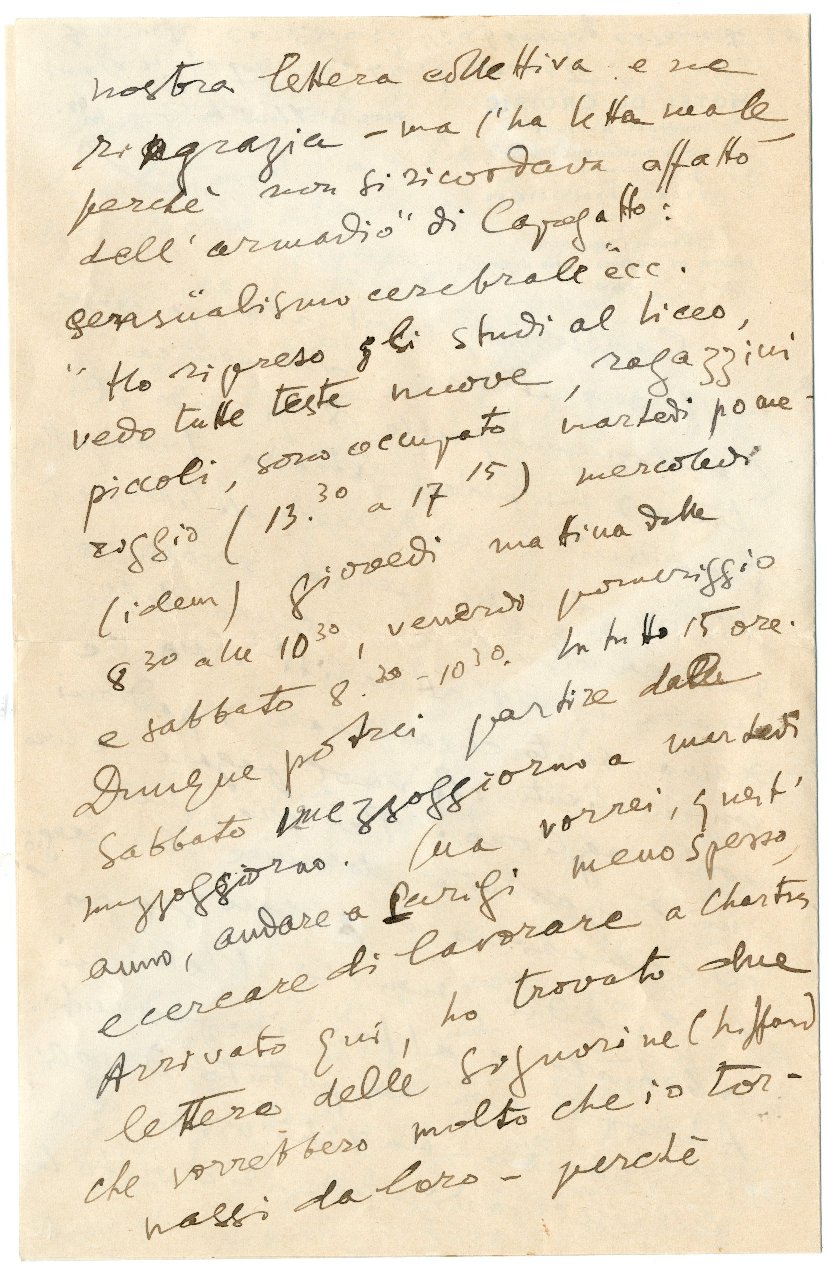 nostra lettera collettiva e ne
ringrazia – ma l'ha letta male,
perchè non si ricordava affatto
dell'"armadio" di Capogatto:
sensüalismo cerebrale ecc.
" Ho ripreso gli studi al liceo,
vedo tutte teste nuove, ragazzini
piccoli, sono occupato martedi pome-
riggio (13.30 a 17 15) mercoledi
(idem) giovedi mattina dalle
8 30 alle 10 30, venerdi pomeriggio
e sabbato 8.30 - 10 30. In tutto 15 ore.
Dunque potrei partire dalle
sabbato mezzoggiorno a martedi
mezzoggiorno. Ma vorrei, quest'
anno, andare a Parigi meno spesso,
e cercare di lavorare a Chartres
Arrivato qui, ho trovato due
lettere delle Signorine
che vorrebbero molto che io tor-
nassi da loro – perchè